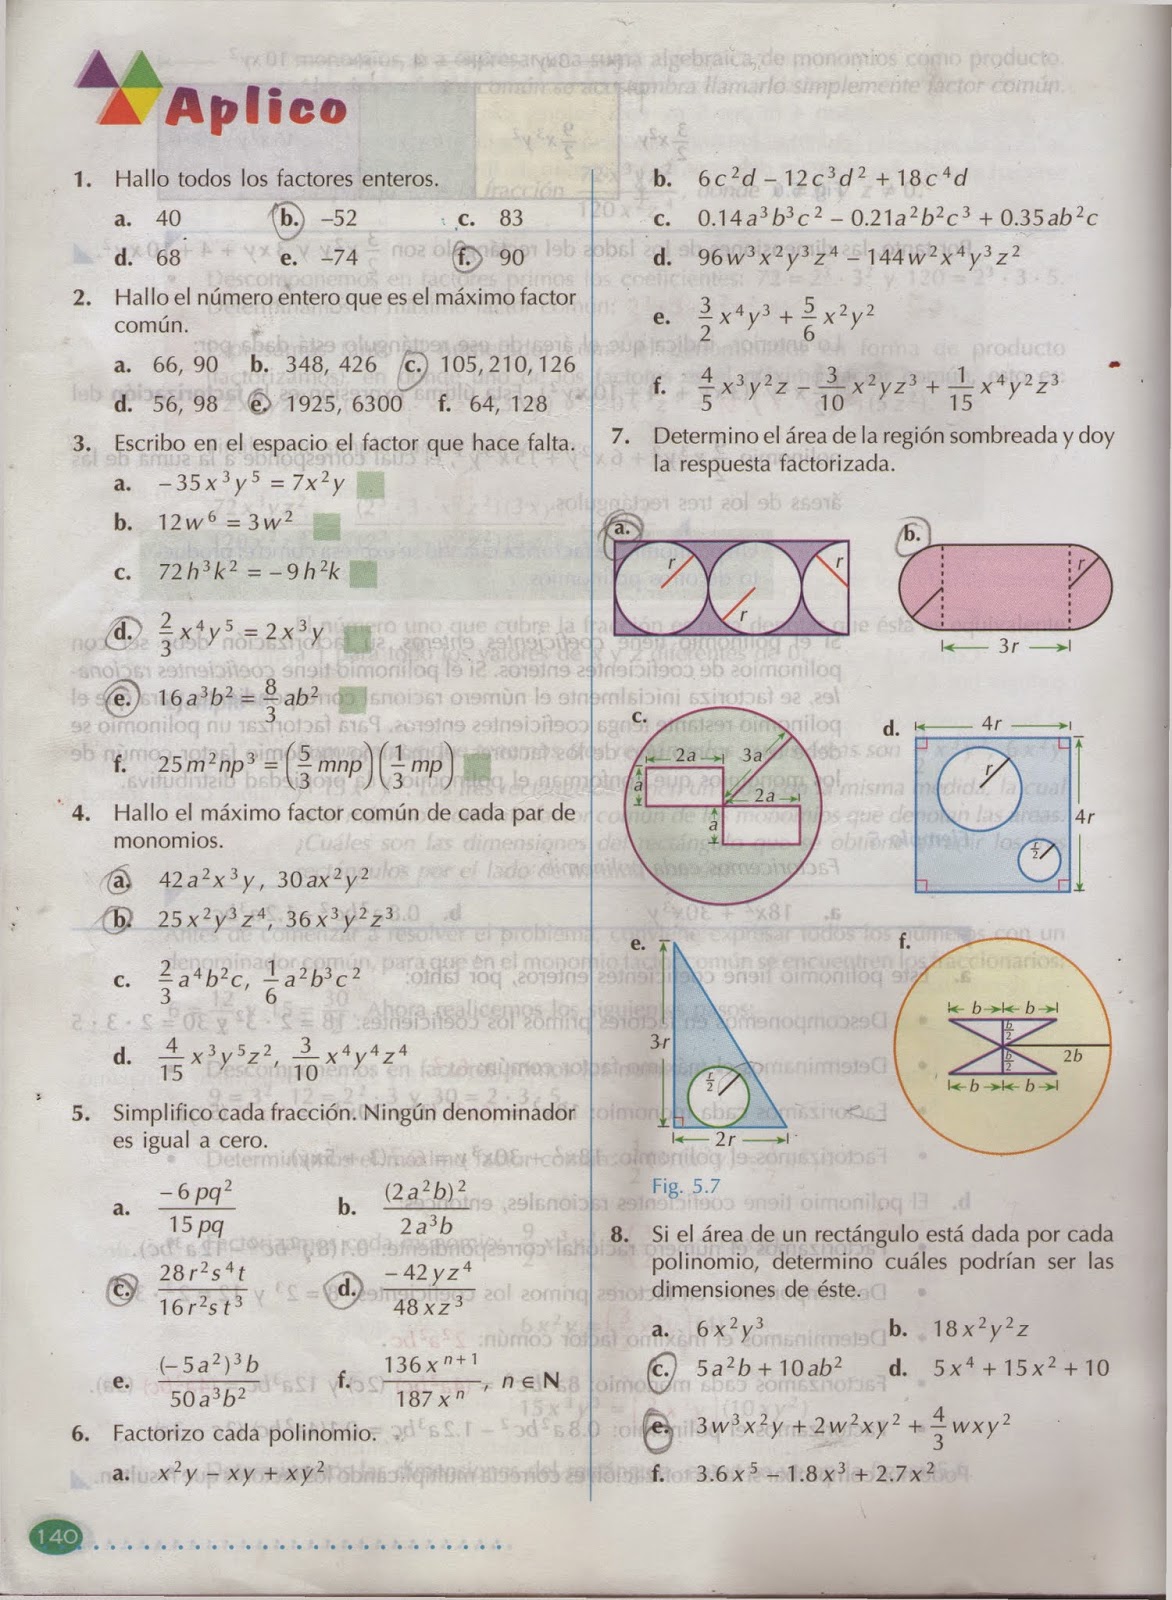 Aplico
1. Hallo todos los factores enteros.
a. 40 b. –52 c. 83
d. 68 e. –74 f. 90
2. Hallo el número entero que es el máximo factor
común.
a. 66, 90 b. 348, 426 c. 105, 210, 126
d. 56, 98 e. 1925, 6300 f. 64, 128
3. Escribo en el espacio el factor que hace falta.
a. –35x³y⁵ = 7x²y
b. 12w⁶ = 3w²
c. 72h³k² = –9h²k
d. 2/3 x⁴y⁵ = 2x³y
e. 16a³b² = 8/3 ab²
f. 25m²np³ = (5/3 mnp)(1/3 mp)
4. Hallo el máximo factor común de cada par de
monomios.
a. 42a²x³y, 30ax²y²
b. 25x²y³z⁴, 36x³y²z³
c. 2/3 a⁴b²c, 1/6 a²b³c²
d. 4/15 x³y⁵z², 3/10 x⁴y⁴z⁴
5. Simplifico cada fracción. Ningún denominador
es igual a cero.
a. –6pq² / 15pq b. (2a²b)² / 2a³b
c. 28r²s⁴t / 16r²st³ d. –42yz⁴ / 48xz³
e. (–5a²)³b / 50a³b² f. 136xⁿ⁺¹ / 187xⁿ, n ∈ N
6. Factorizo cada polinomio.
a. x²y – xy + xy²
140
b. 6c²d – 12c³d² + 18c⁴d
c. 0.14a³b³c² – 0.21a²b²c³ + 0.35ab²c
d. 96w³x²y³z⁴ – 144w²x⁴y³z²
e. 3/2 x⁴y³ + 5/6 x²y²
f. 4/5 x³y²z – 3/10 x²yz³ + 1/15 x⁴y²z³
7. Determino el área de la región sombreada y doy
la respuesta factorizada.
a. r r r
b. r 3r
c. 2a 3a a 2a a
d. 4r r 4r r/2
e. 3r r/2 2r
f. b b b/2 b/2 2b b b
Fig. 5.7
8. Si el área de un rectángulo está dada por cada
polinomio, determino cuáles podrían ser las
dimensiones de éste.
a. 6x²y³ b. 18x²y²z
c. 5a²b + 10ab² d. 5x⁴ + 15x² + 10
e. 3w³x²y + 2w²xy² + 4/3 wxy²
f. 3.6x⁵ – 1.8x³ + 2.7x²